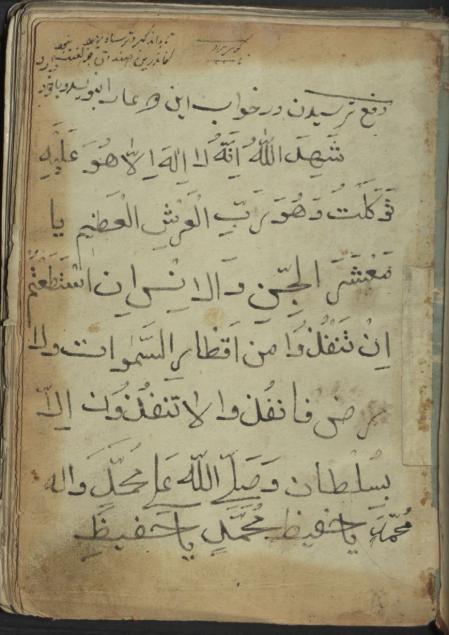 دفع ترسیدن در خواب این دعا را بنویسد و با خود
شَهِدَ اللّٰهُ اَنَّهُ لَا اِلٰهَ اِلَّا هُوَ عَلَیْهِ
تَوَکَّلْتُ وَهُوَ رَبِّ الْعَرْشِ الْعَظِیْمِ یا
مَعْشَرَ الْجِنِّ وَالاِنْسِ اِنِ اسْتَطَعْتُمْ
اَنْ تَنْفُذُوا مِنْ اَقْطَارِ السَّمٰوات وَلا
رض فانفذوا لا تنفُذُونَ اِلّا
بِسُلْطان وَصَلَّی اللّٰه عَلی مُحَمَّدٍ وَاله
مُحَمَّدٍ یا حَفِیظُ مُحَمَّدٍ یا حَفِیظِ